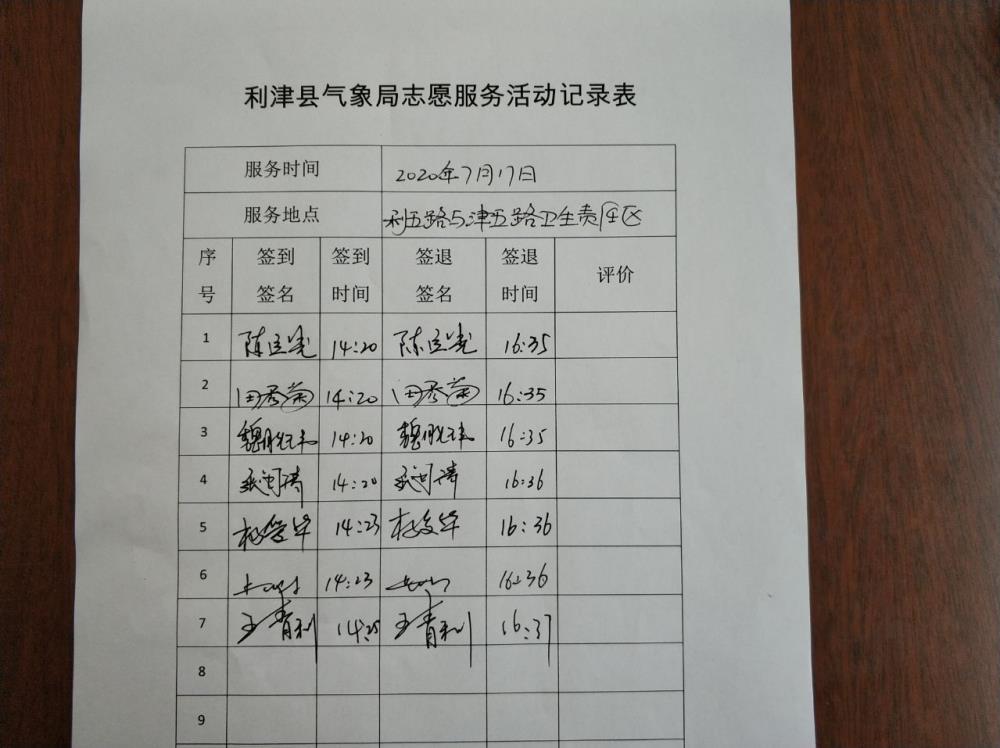 利津县气象局志愿服务活动记录表
服务时间 2020年7月17日
服务地点 利五路与津五路卫生责任区
序号 签到签名 签到时间 签退签名 签退时间 评价
1 14:20 16:35
2 田秀菊 14:20 田秀菊 16:35
3 14:20 16:35
4 14:20 16:36
5 14:23 16:36
6 14:23 16:36
7 王青利 14:25 王青利 16:37
8
9